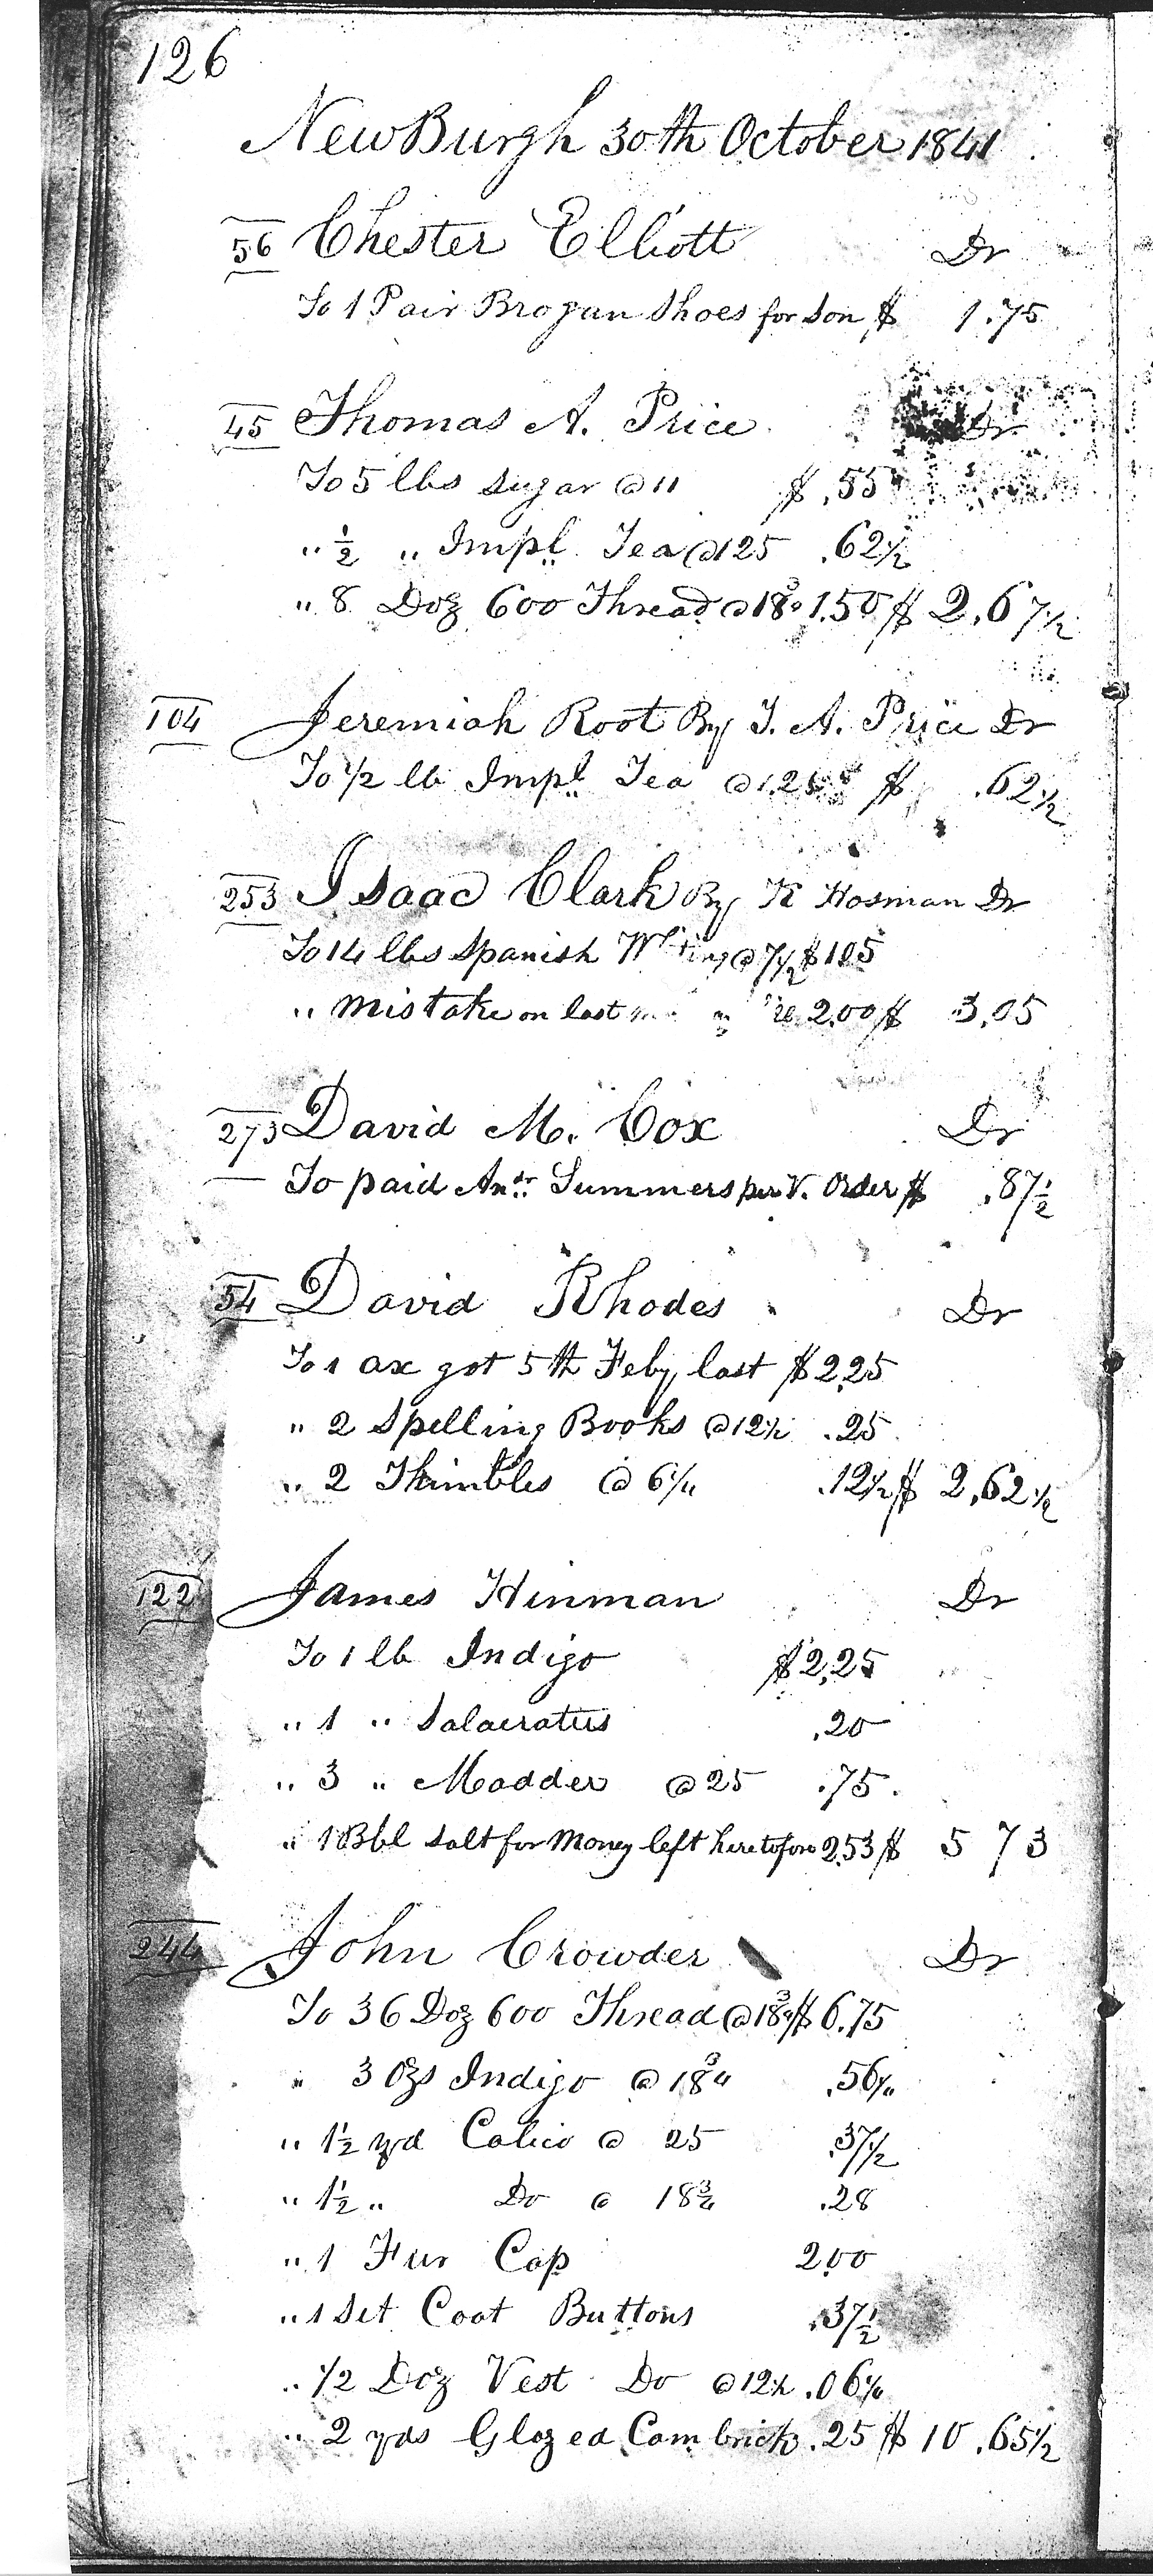 126
NewBurgh 30th October 1841
56 Chester Elliott Dr
To 1 Pair Brogan Shoes for Son $ 1.75
45 Thomas A. Price Dr
To 5 lbs Sugar @ 11 $ .55
" ½ " Impl. Tea @ 125 .62½
" 8 Doz 600 Thread @ 18¾ 1.50 $ 2.67½
104 Jeremiah Root By T. A. Price Dr
To ½ lb Impl Tea @ 1.25 $ .62½
253 Isaac Clark By K Hosman Dr
To 14 lbs Spanish @ 7½ $ 1.05
" Mistake on last 2.00 $ 3.05
273 David M. Cox Dr
To paid Andr Summers per V. Order $ .87½
54 David Rhodes Dr
To 1 ax got 5th Feby last $ 2.25
" 2 Spelling Books @ 12½ .25
" 2 Thimbles @ 6¼ .12½ $ 2.62½
122 James Hinman Dr
To 1 lb Indigo $ 2.25
" 1 " Salaeratus .20
" 3 " Madder @ 25 .75
" 1 Bbl Salt for Money left heretofore 2.53 $ 5 73
244 John Crowder Dr
To 36 Doz 600 Thread @ 18¾ $ 6.75
" 3 Ozs Indigo @ 18¾ .56¼
" 1½ yd Calico @ 25 .37½
" 1½ " Do @ 18¾ .28
" 1 Fur Cap 2.00
" 1 Set Coat Buttons .37½
" ½ Doz Vest Do @ 12½ .06¼
" 2 yds Glazed Cambrick .25 $ 10.65½